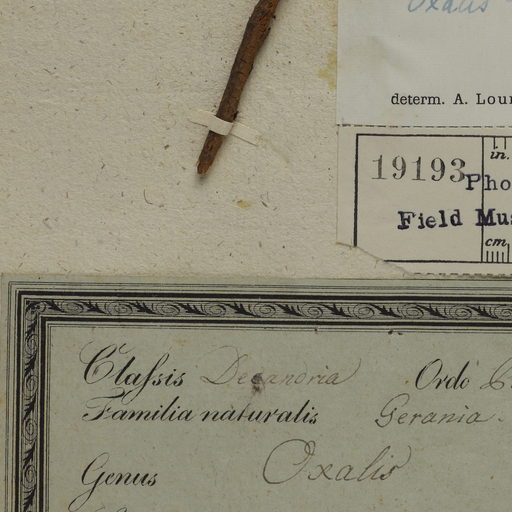 Oxalis
determ. A. Lour
19193
in.
Pho
Field Mus
cm
Classis Decandria Ordo
Familia naturalis Gerania.
Genus Oxalis